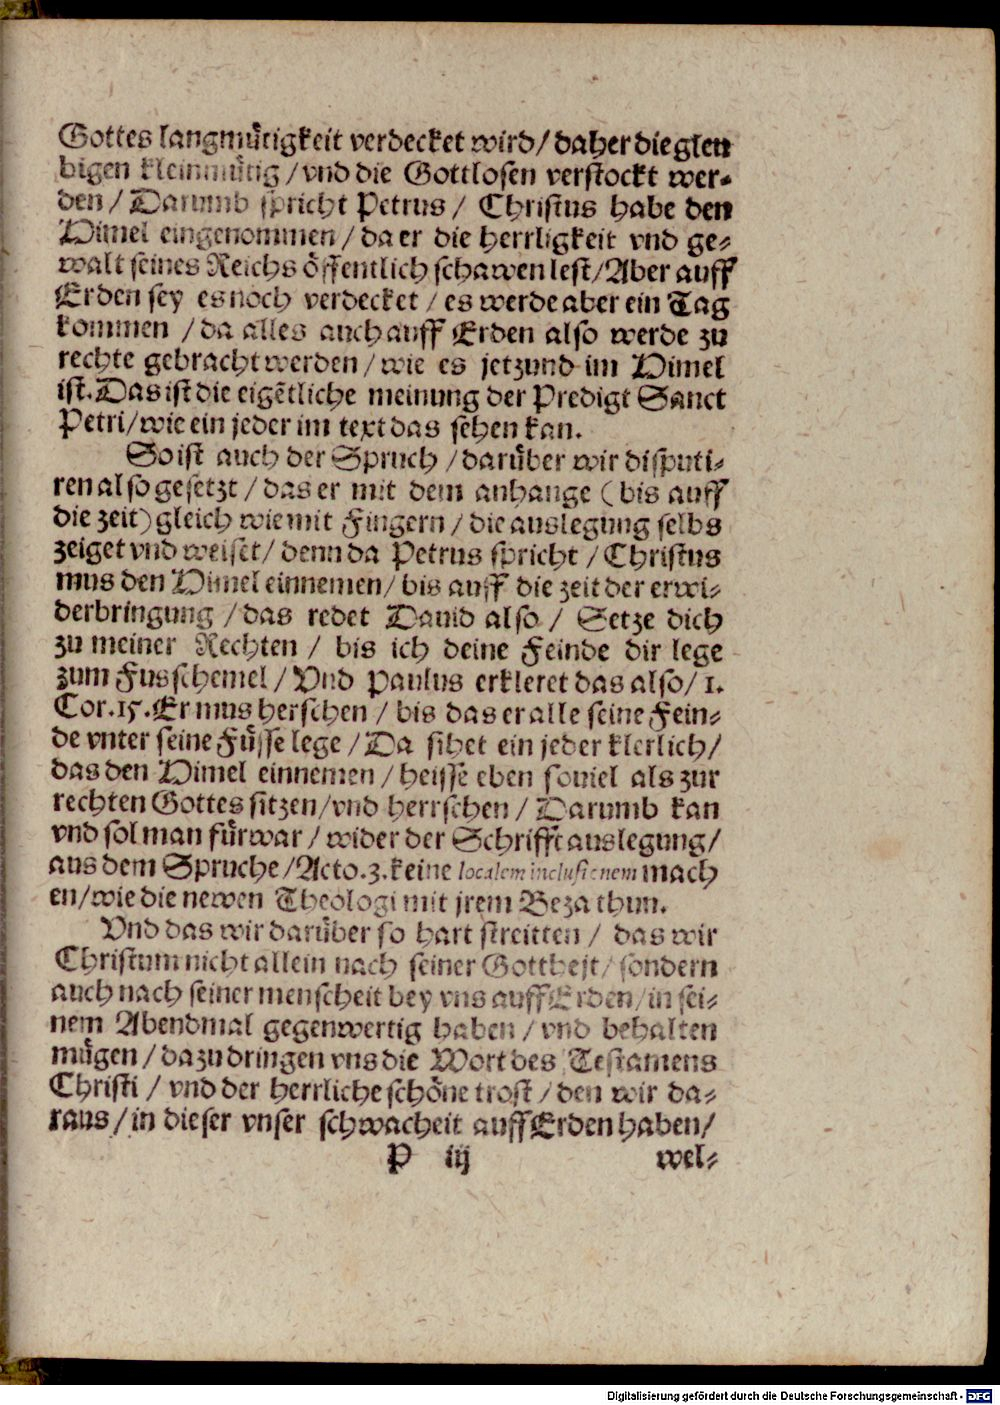 Gottes langmuͤtigkeit verdecket wird/ daher die gleu
bigen kleinmuͤtig /vnd die Gottlosen verstockt wer-
den / Darumb spricht Petrus / Christus habe den
Himel eingenommen / da er die herrligkeit vnd ge-
walt seines Reichs oͤffentlich schawen lest/Aber auff
Erden sey es noch verdecket / es werde aber ein Tag
kommen / da alles auch auff Erden also werde zu
rechte gebracht werden / wie es jetzund im Himel
ist. Das ist die eigẽtliche meinung der Predigt Sanct
Petri/wie ein jeder im text das sehen kan.
So ist auch der Spruch / daruͤber wir disputi-
ren also gesetzt / das er mit dem anhange ( bis auff
die zeit) gleich wie mit Fingern / die auslegung selbs
zeiget vnd weiset/ denn da Petrus spricht / Christus
mus den Himel einnemen/ bis auff die zeit der erwi-
derbringung /das redet Dauid also / Setze dich
zu meiner Rechten / bis ich deine Feinde dir lege
zum Fusschemel / Vnd Paulus erkleret das also/ 1.
Cor.15. Er mus herschen / bis das er alle seine Fein-
de vnter seine Fuͤsse lege / Da sihet ein jeder klerlich/
das den Himel einnemen / heisse eben souiel als zur
rechten Gottes sitzen/vnd herrschen / Darumb kan
vnd sol man fuͤrwar / wider der Schrifft auslegung/
aus dem Spruche /Acto.3. keine localem inclusionem mach
en/wie die newen Theologi mit jrem Beza thun.
Vnd das wir daruͤber so hart streitten / das wir
Christum nicht allein nach seiner Gottheit/ sondern
auch nach seiner menscheit bey vns auff Erden/in sei-
nem Abendmal gegenwertig haben / vnd behalten
muͤgen / dazu dringen vns die Wort des Testamens
Christi / vnd der herrliche schoͤne trost / den wir da-
raus / in dieser vnser schwacheit auff Erden haben/
P iij wel-
Digitalisierung gefördert durch die Deutsche Forschungsgemeinschaft - DFG